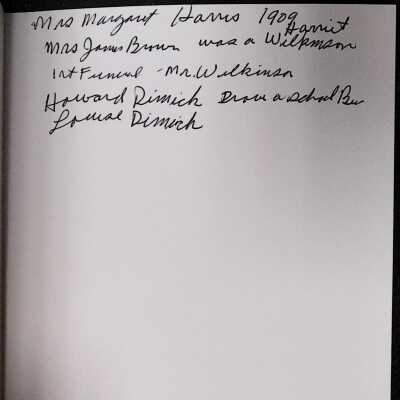 Mrs Margaret Harris 1909
Harriet
Mrs James Brown was a Wilkinson
1st Funeral - Mr. Wilkinson
Howard Dimick Drove a school Bus
Louise Dimick